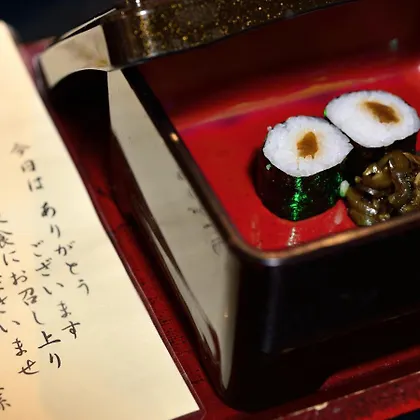 今日は ありがとう
ございます
食にお召し上り
さいませ